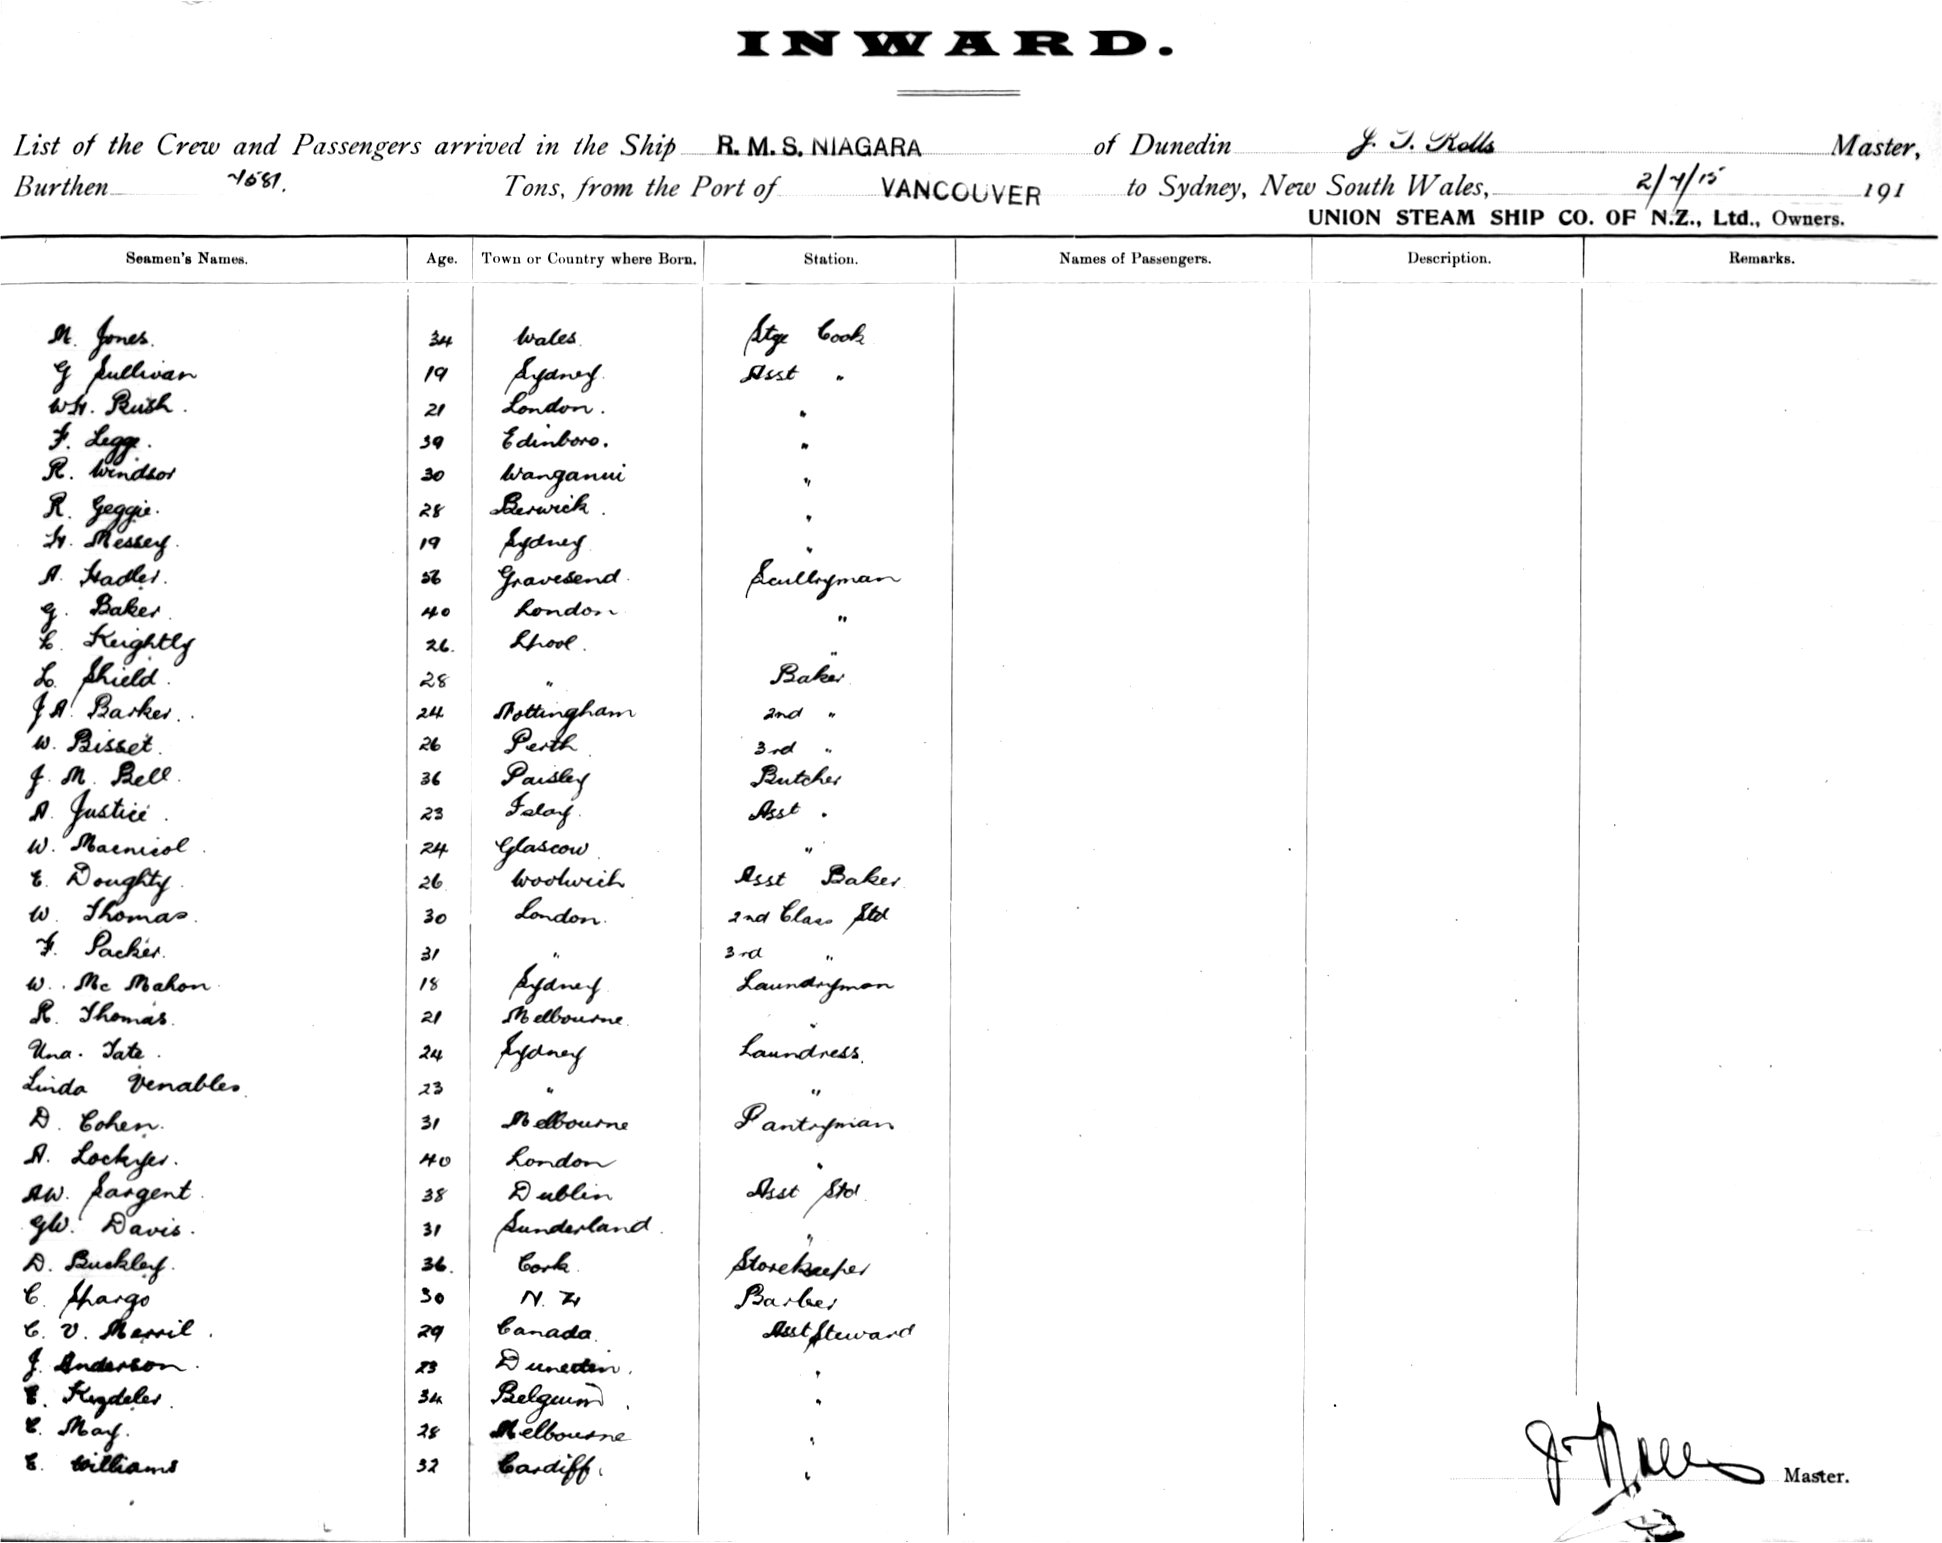 INWARD.
List of the Crew and Passengers arrived in the Ship R. M. S. NIAGARA of Dunedin J. T. Rolls Master,
Burthen 7581. Tons, from the Port of VANCOUVER to Sydney, New South Wales, 2/7/15 191
UNION STEAM SHIP CO. OF N.Z., Ltd., Owners.
Seamen's Names. Age. Town or Country where Born. Station. Names of Passengers. Description. Remarks.
M. Jones. 34 Wales. Stge Cook
G Sullivan 19 Sydney. Asst "
WH. Bush. 21 London. "
F. Legge. 39 Edinboro. "
R. Windsor 30 Wanganui "
R. Geggie. 28 Berwick. "
H. Messey. 19 Sydney "
A. Hadler. 56 Gravesend. Scullryman
G. Baker. 40 London "
E. Keightly 26. Lpool. "
L. Shield. 28 " Baker
J A. Barker. 24 Nottingham 2nd "
W. Bisset. 26 Perth 3rd "
J. M. Bell. 36 Paisley Butcher
A. Justice. 23 Islay. Asst "
W. Macnicol. 24 Glascow "
E. Doughty. 26 Woolwich Asst Baker
W. Thomas. 30 London. 2nd Class Std
F. Packer. 31 " 3rd "
W. Mc Mahon 18 Sydney Laundryman
R. Thomas. 21 Melbourne "
Una. Tate. 24 Sydney Laundress.
Linda Venables. 23 " "
D. Cohen. 31 Melbourne Pantryman
A. Lockyer. 40 London "
AW. Sargent. 38 Dublin Asst Std
GW. Davis. 31 Sunderland. "
D. Buckley. 36. Cork Storekeeper
C. Spargo 30 N. Z Barber
C. V. Merril. 29 Canada. Asst Steward
J. Anderson. 23 Dunedin. "
E. 34 Belgium. "
C. May. 28 Melbourne "
E. Williams 32 Cardiff. "
J T Rolls Master.